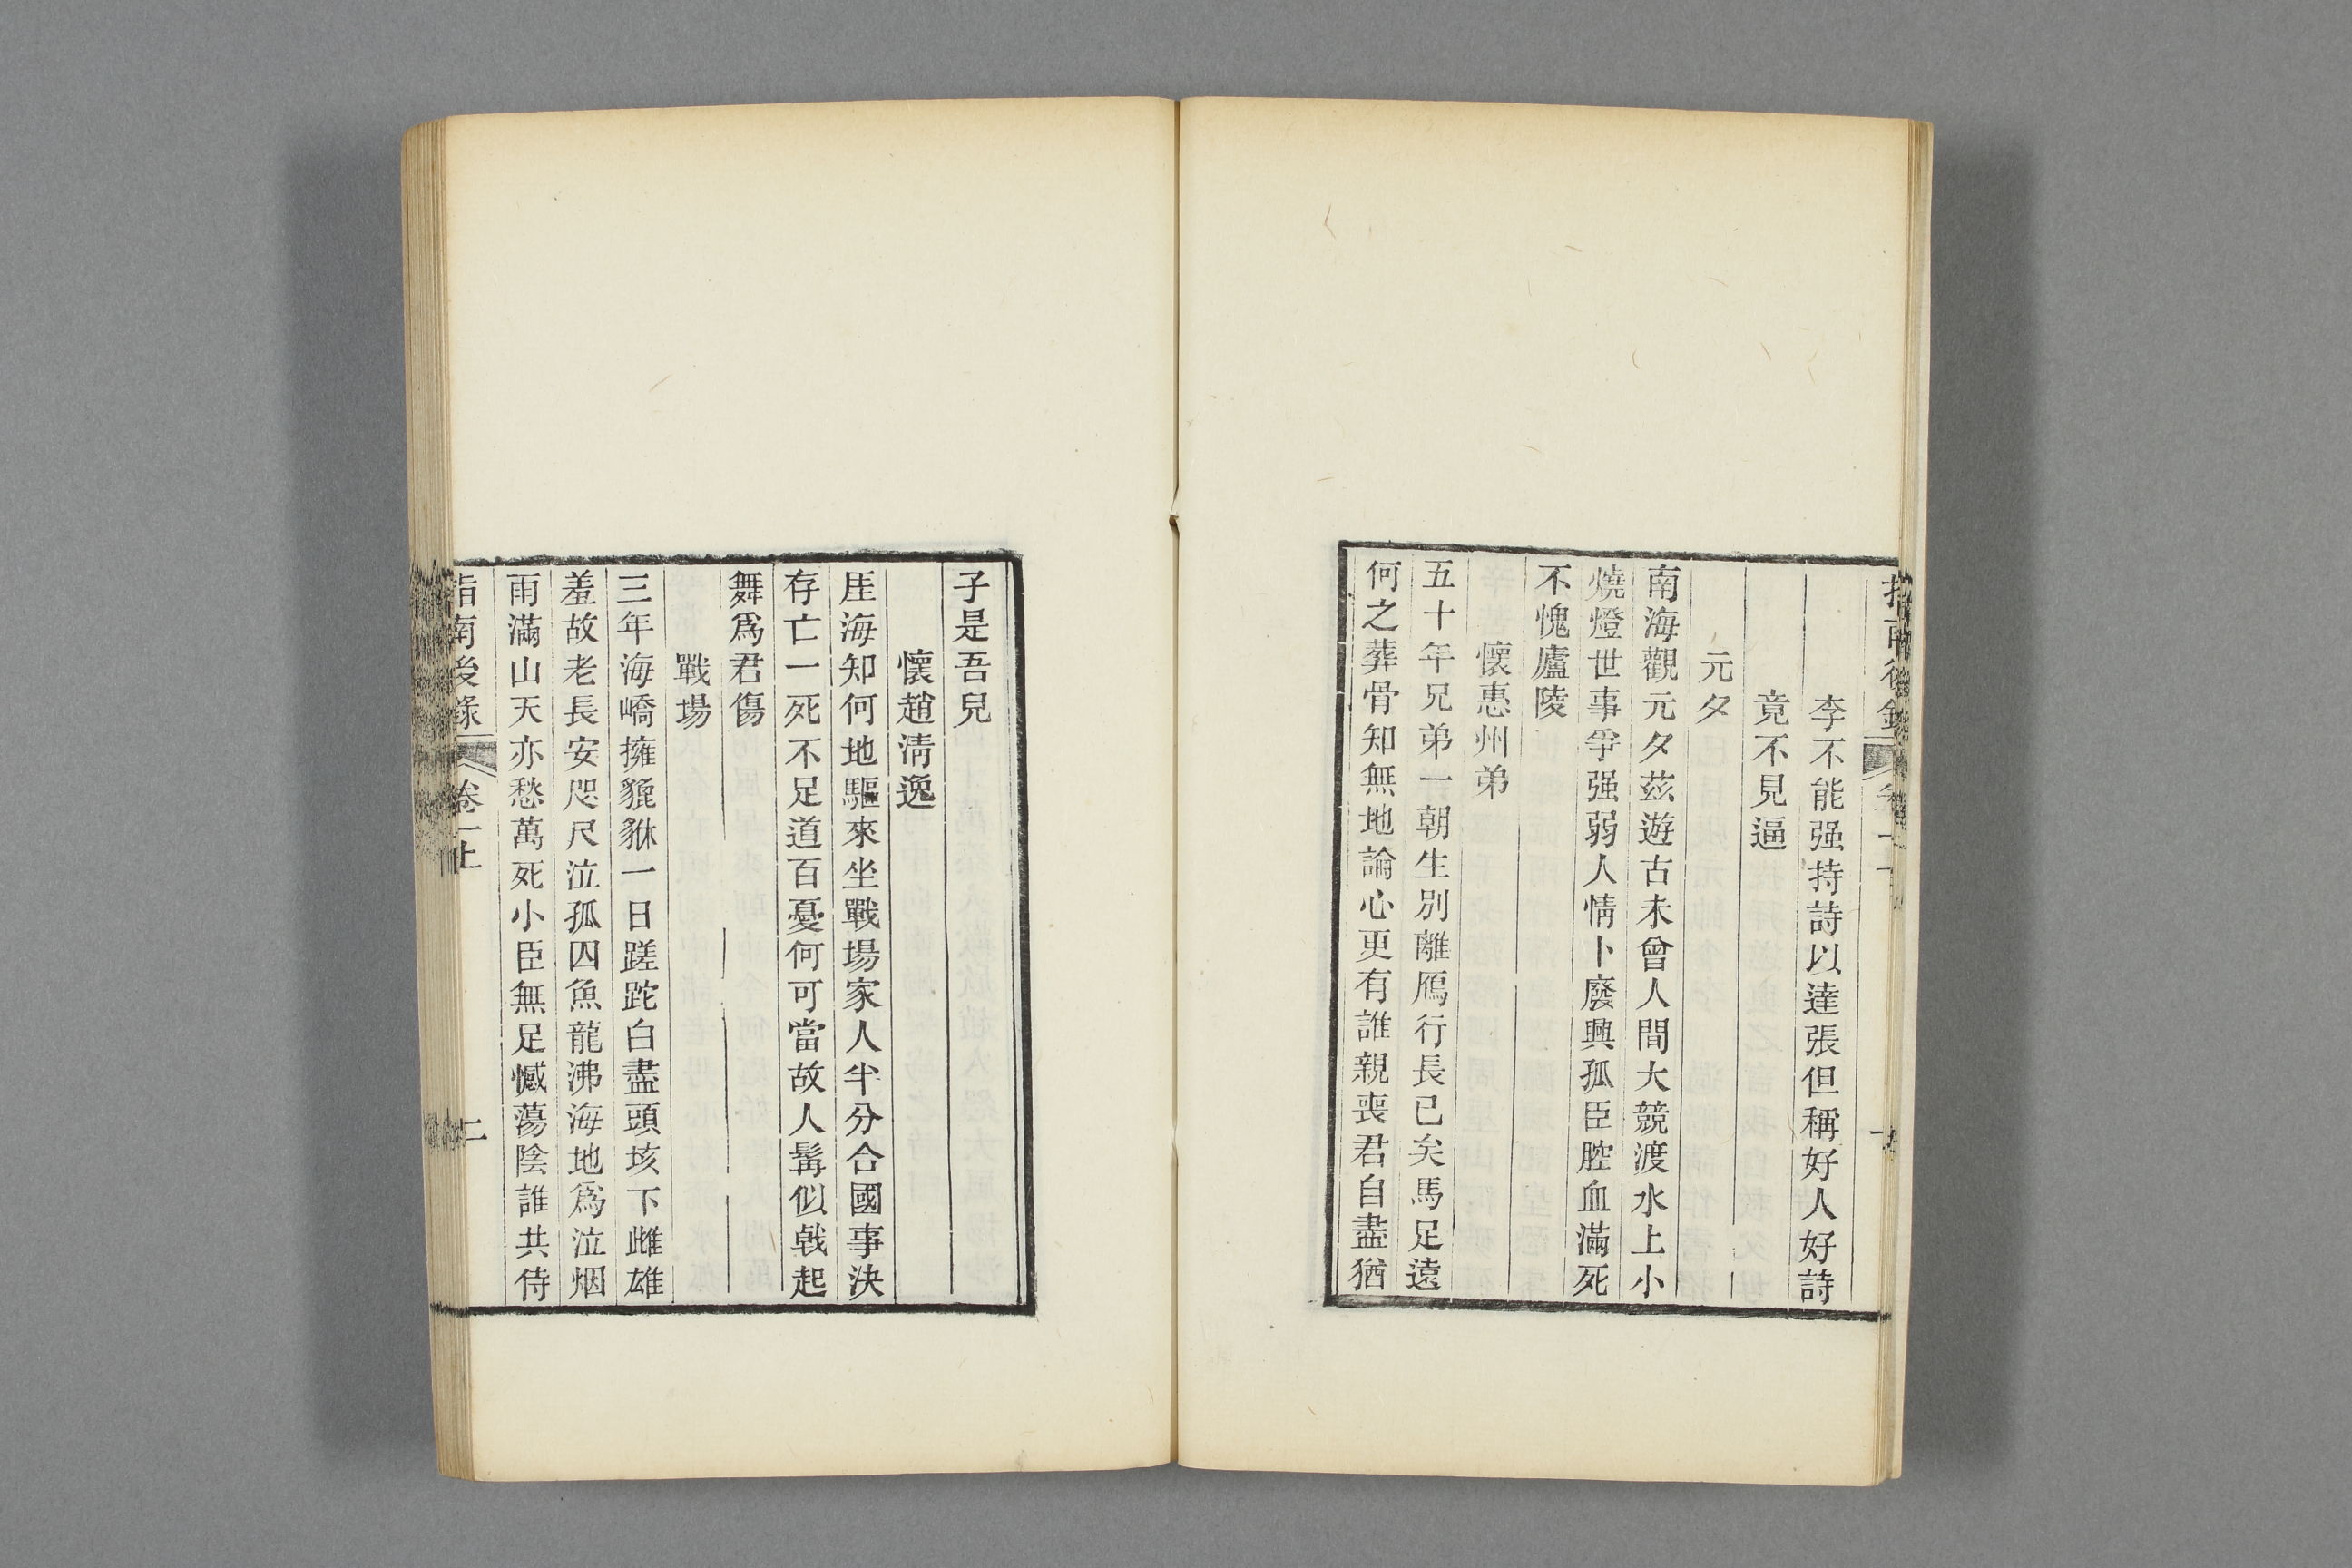 李不能强持詩以達張但稱好人好詩
竟不見逼
元夕
南海觀元夕茲遊古未曾人間大競渡水上小
燒燈世事爭强弱人情卜廢興孤臣腔血滿死
不愧廬陵
懷惠州弟
五十年兄弟一朝生別離雁行長已矣馬足遠
何之葬骨知無地論心更有誰親喪君自盡猶
子是吾兒
懷趙清逸
厓海知何地驅來坐戰場家人半分合國事決
存亡一死不足道百憂何可當故人髯似戟起
舞爲君傷
戰場
三年海嶠擁貔貅一日蹉跎白盡頭垓下雌雄
羞故老長安咫尺泣孤囚魚龍沸海地爲泣烟
雨滿山天亦愁萬死小臣無足憾蕩陰誰共侍
指南後錄 卷一上 二